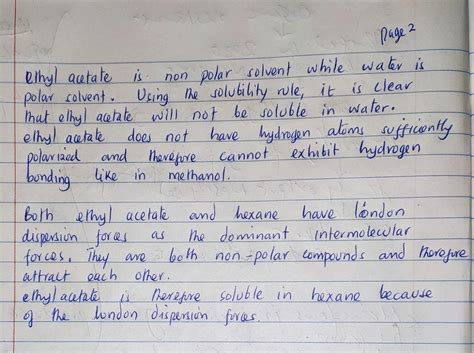 Page 2
ethyl acetate is non polar solvent while water is
polar solvent. Using the solubility rule, it is clear
that ethyl acetate will not be soluble in water.
ethyl acetate does not have hydrogen atoms sufficiently
polarized and therefore cannot exhibit hydrogen
bonding like in methanol.
Both ethyl acetate and hexane have london
dispersion forces as the dominant intermolecular
forces. They are both non-polar compounds and therefore
attract each other.
ethyl acetate is therefore soluble in hexane because
of the london dispersion forces.